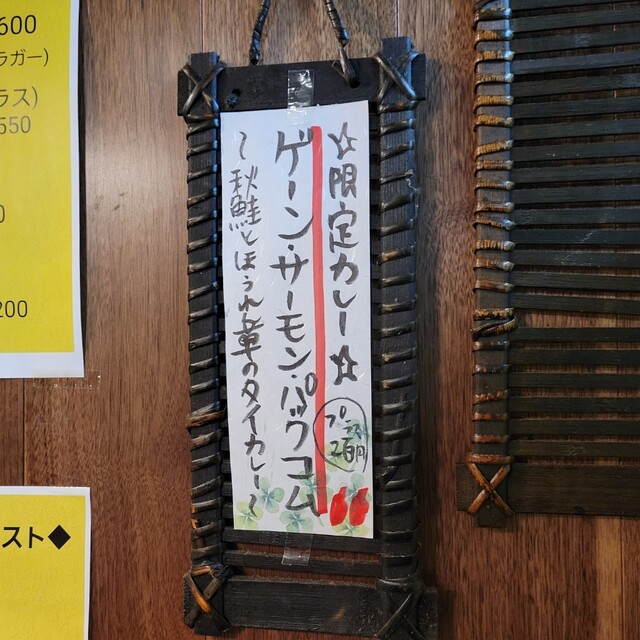 ☆限定カレー☆
ゲーン・サーモン・パックコム
～秋鮭とほうれん草のタイカレー～
プラス
2百円
600
ラガー)
ラス)
550
0
200
スト◆